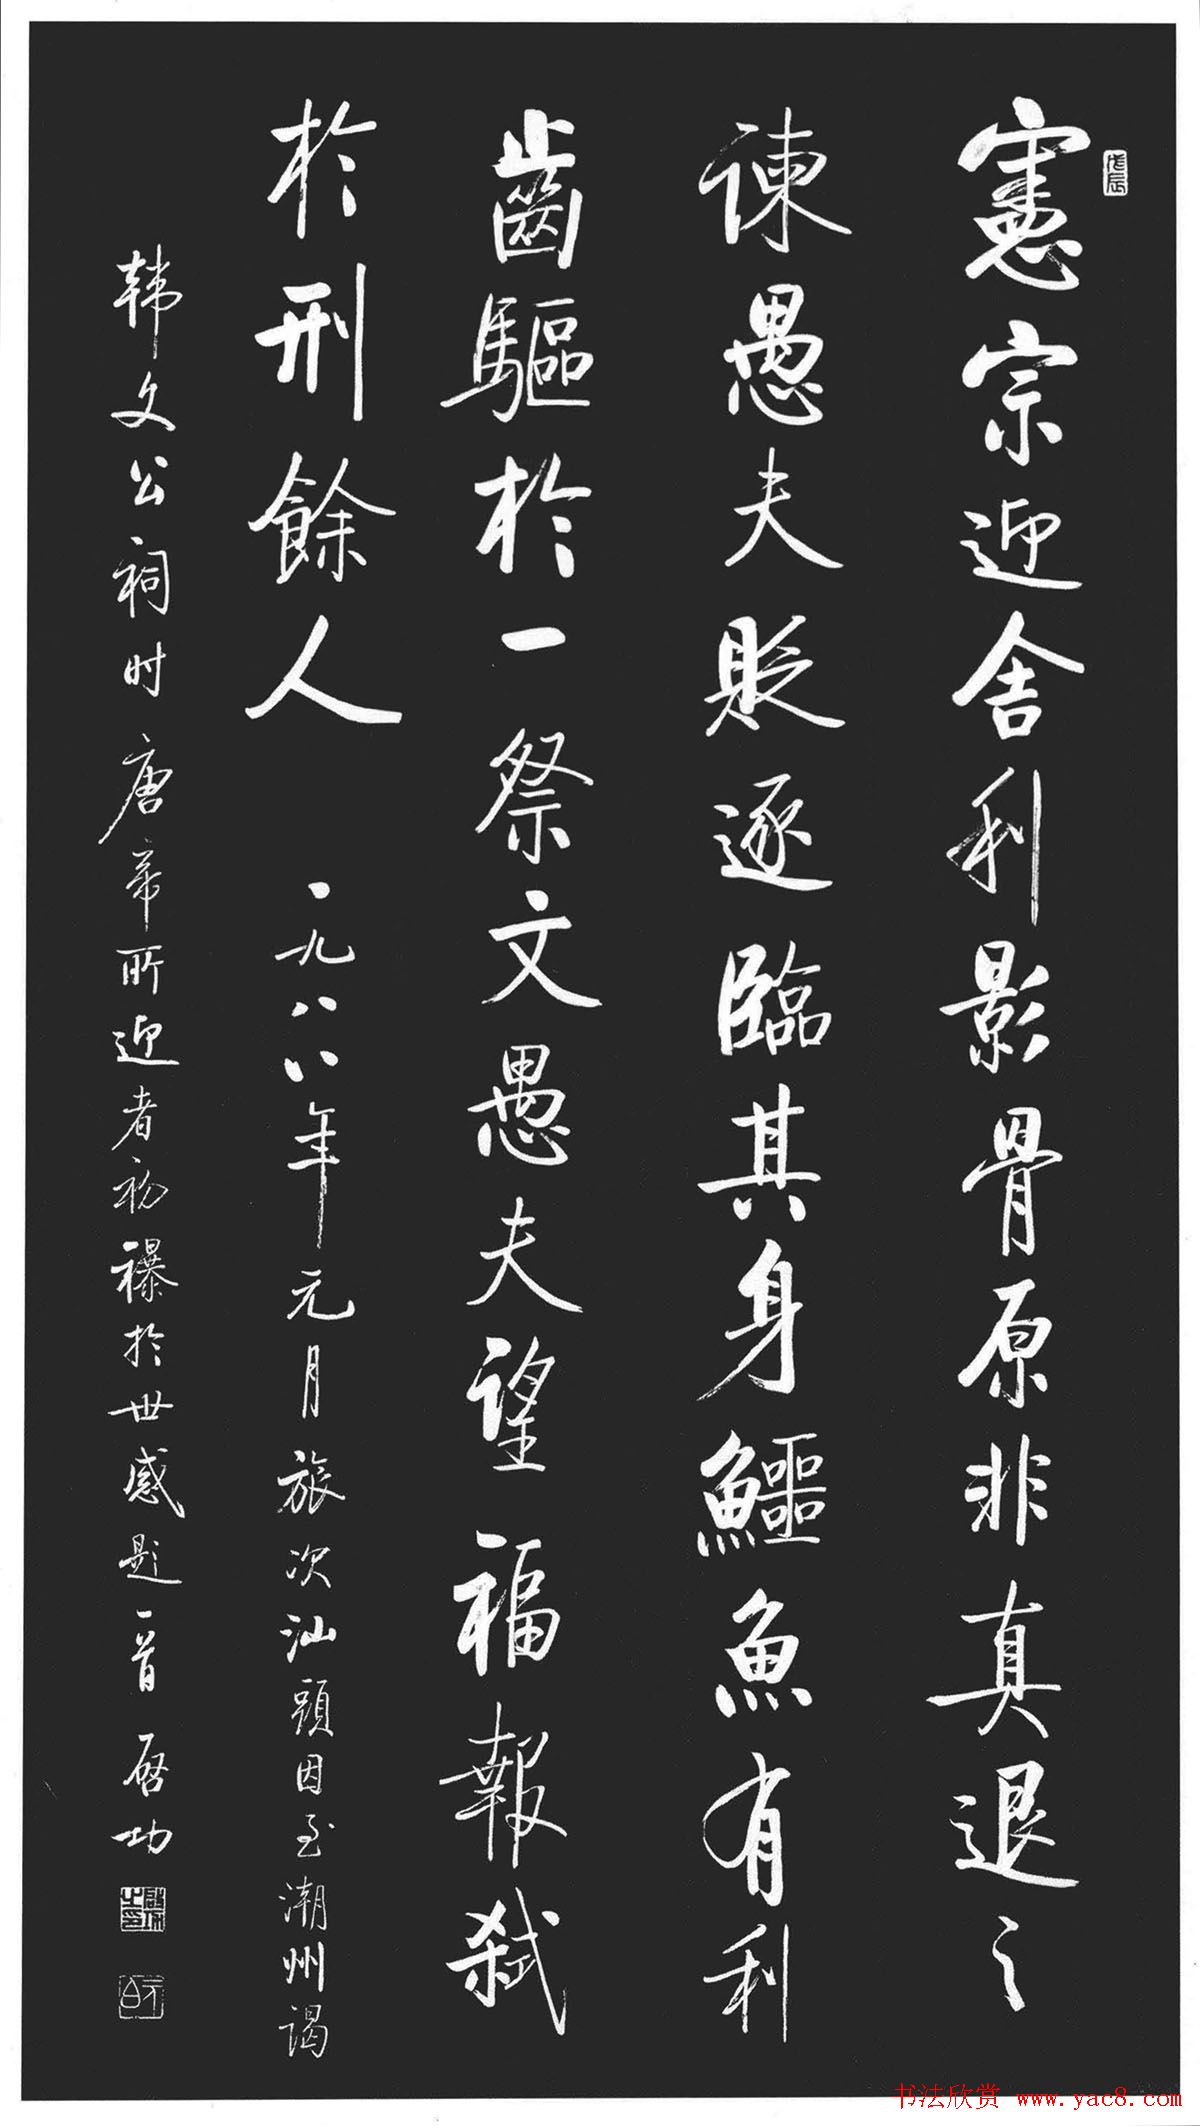 戊辰
憲宗迎舍利影骨原非真退之
諫愚夫貶逐臨其身鱷魚有利
齒驅於一祭文愚夫望福報弑
於刑餘人
一九八八年元月旅次汕頭因至潮州謁
韩文公祠时唐帝所迎者初襮於世感题一首 启功
书法欣赏 www.yac8.com